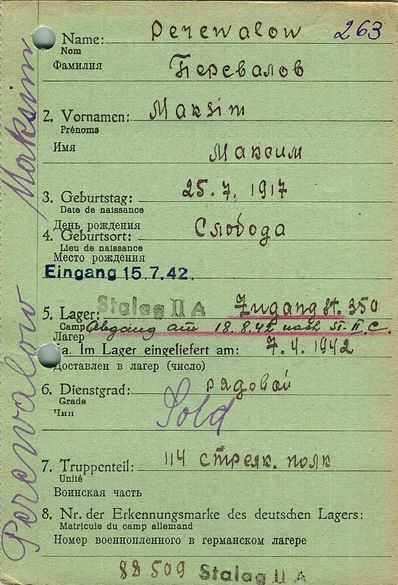 Perewalow Maksim
1. Name: Perewalow 263
Nom
Фамилия Перевалов
2. Vornamen: Maksim
Prénoms
Имя Максим
3. Geburtstag: 25.7.1917
Date de naissance
День рождения
4. Geburtsort: Слобода
Lieu de naissance
Место рождения
Eingang 15.7.42.
5. Lager: Stalag II A Zugang St. 350
Camp Abgang am 18.8.42 nach St. II. C.
Лагер
5a. Im Lager eingeliefert am: 7.4.1942
Доставлен в лагер (число)
6. Dienstgrad: рядовой
Grade Sold
Чин
7. Truppenteil: 114 стрелк. полк
Unité
Воинская часть
8. Nr. der Erkennungsmarke des deutschen Lagers:
Matricule du camp allemand
Номер военнопленного в германском лагере
88509 Stalag II A